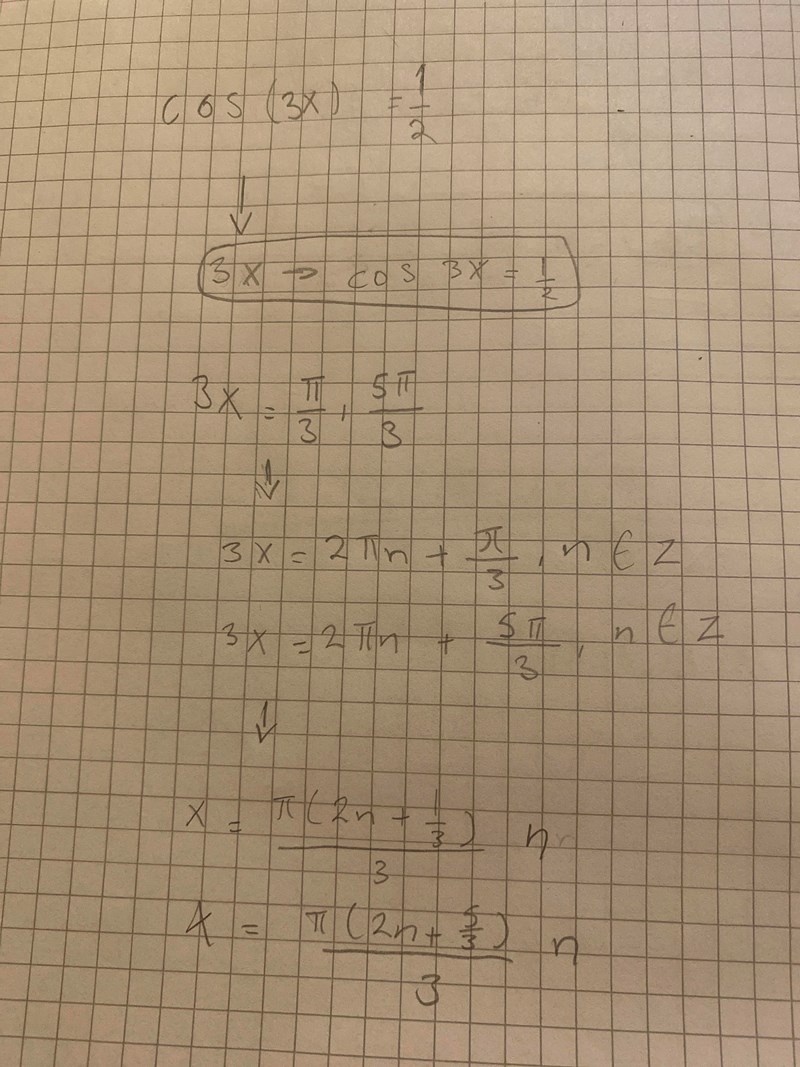 cos(3x) = 1/2
↓
3x → cos 3x = 1/2
3x = π/3, 5π/3
↓
3x = 2πn + π/3, n ∈ Z
3x = 2πn + 5π/3, n ∈ Z
↓
x = π(2n + 1/3)/3 n
x = π(2n + 5/3)/3 n